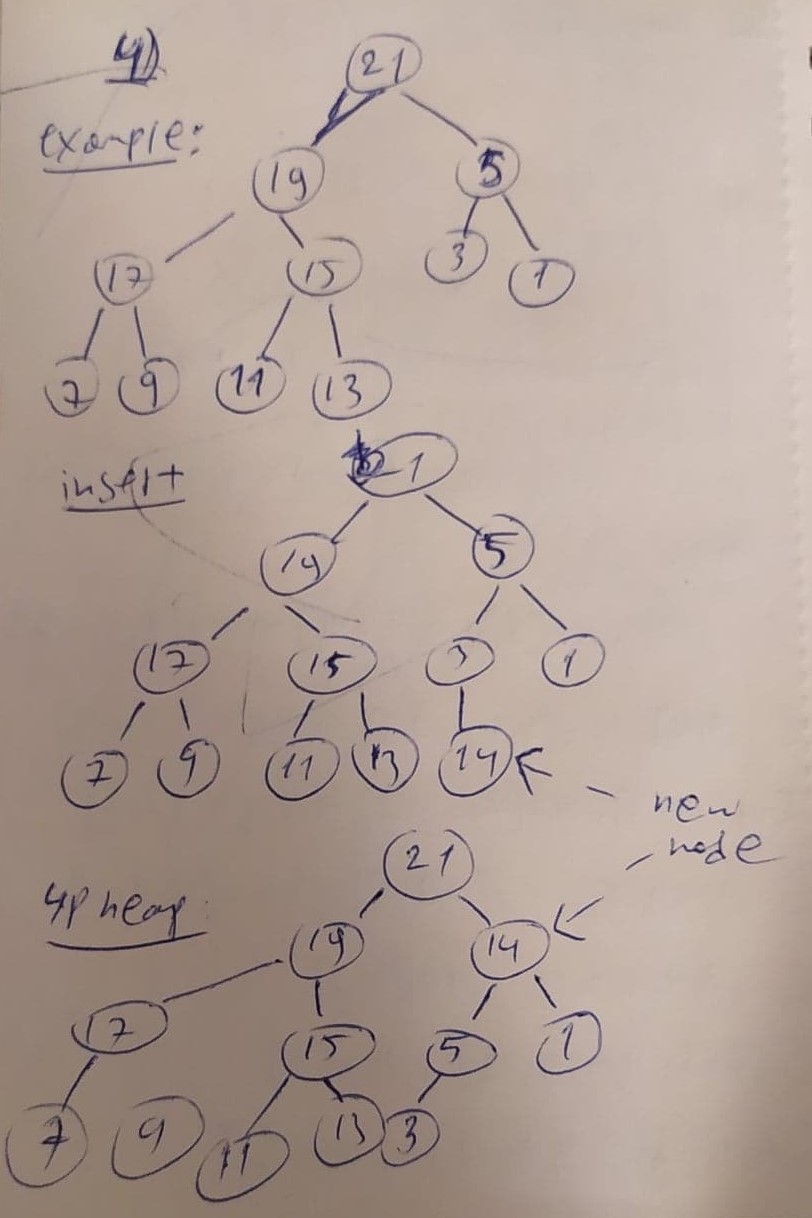 4)
21
example:
19 5
17 15 3 1
7 9 11 13
insert 21
19 5
17 15 3 1
7 9 11 13 14
new
node
21
up heap
19 14
17 15 5 1
7 9 11 13 3